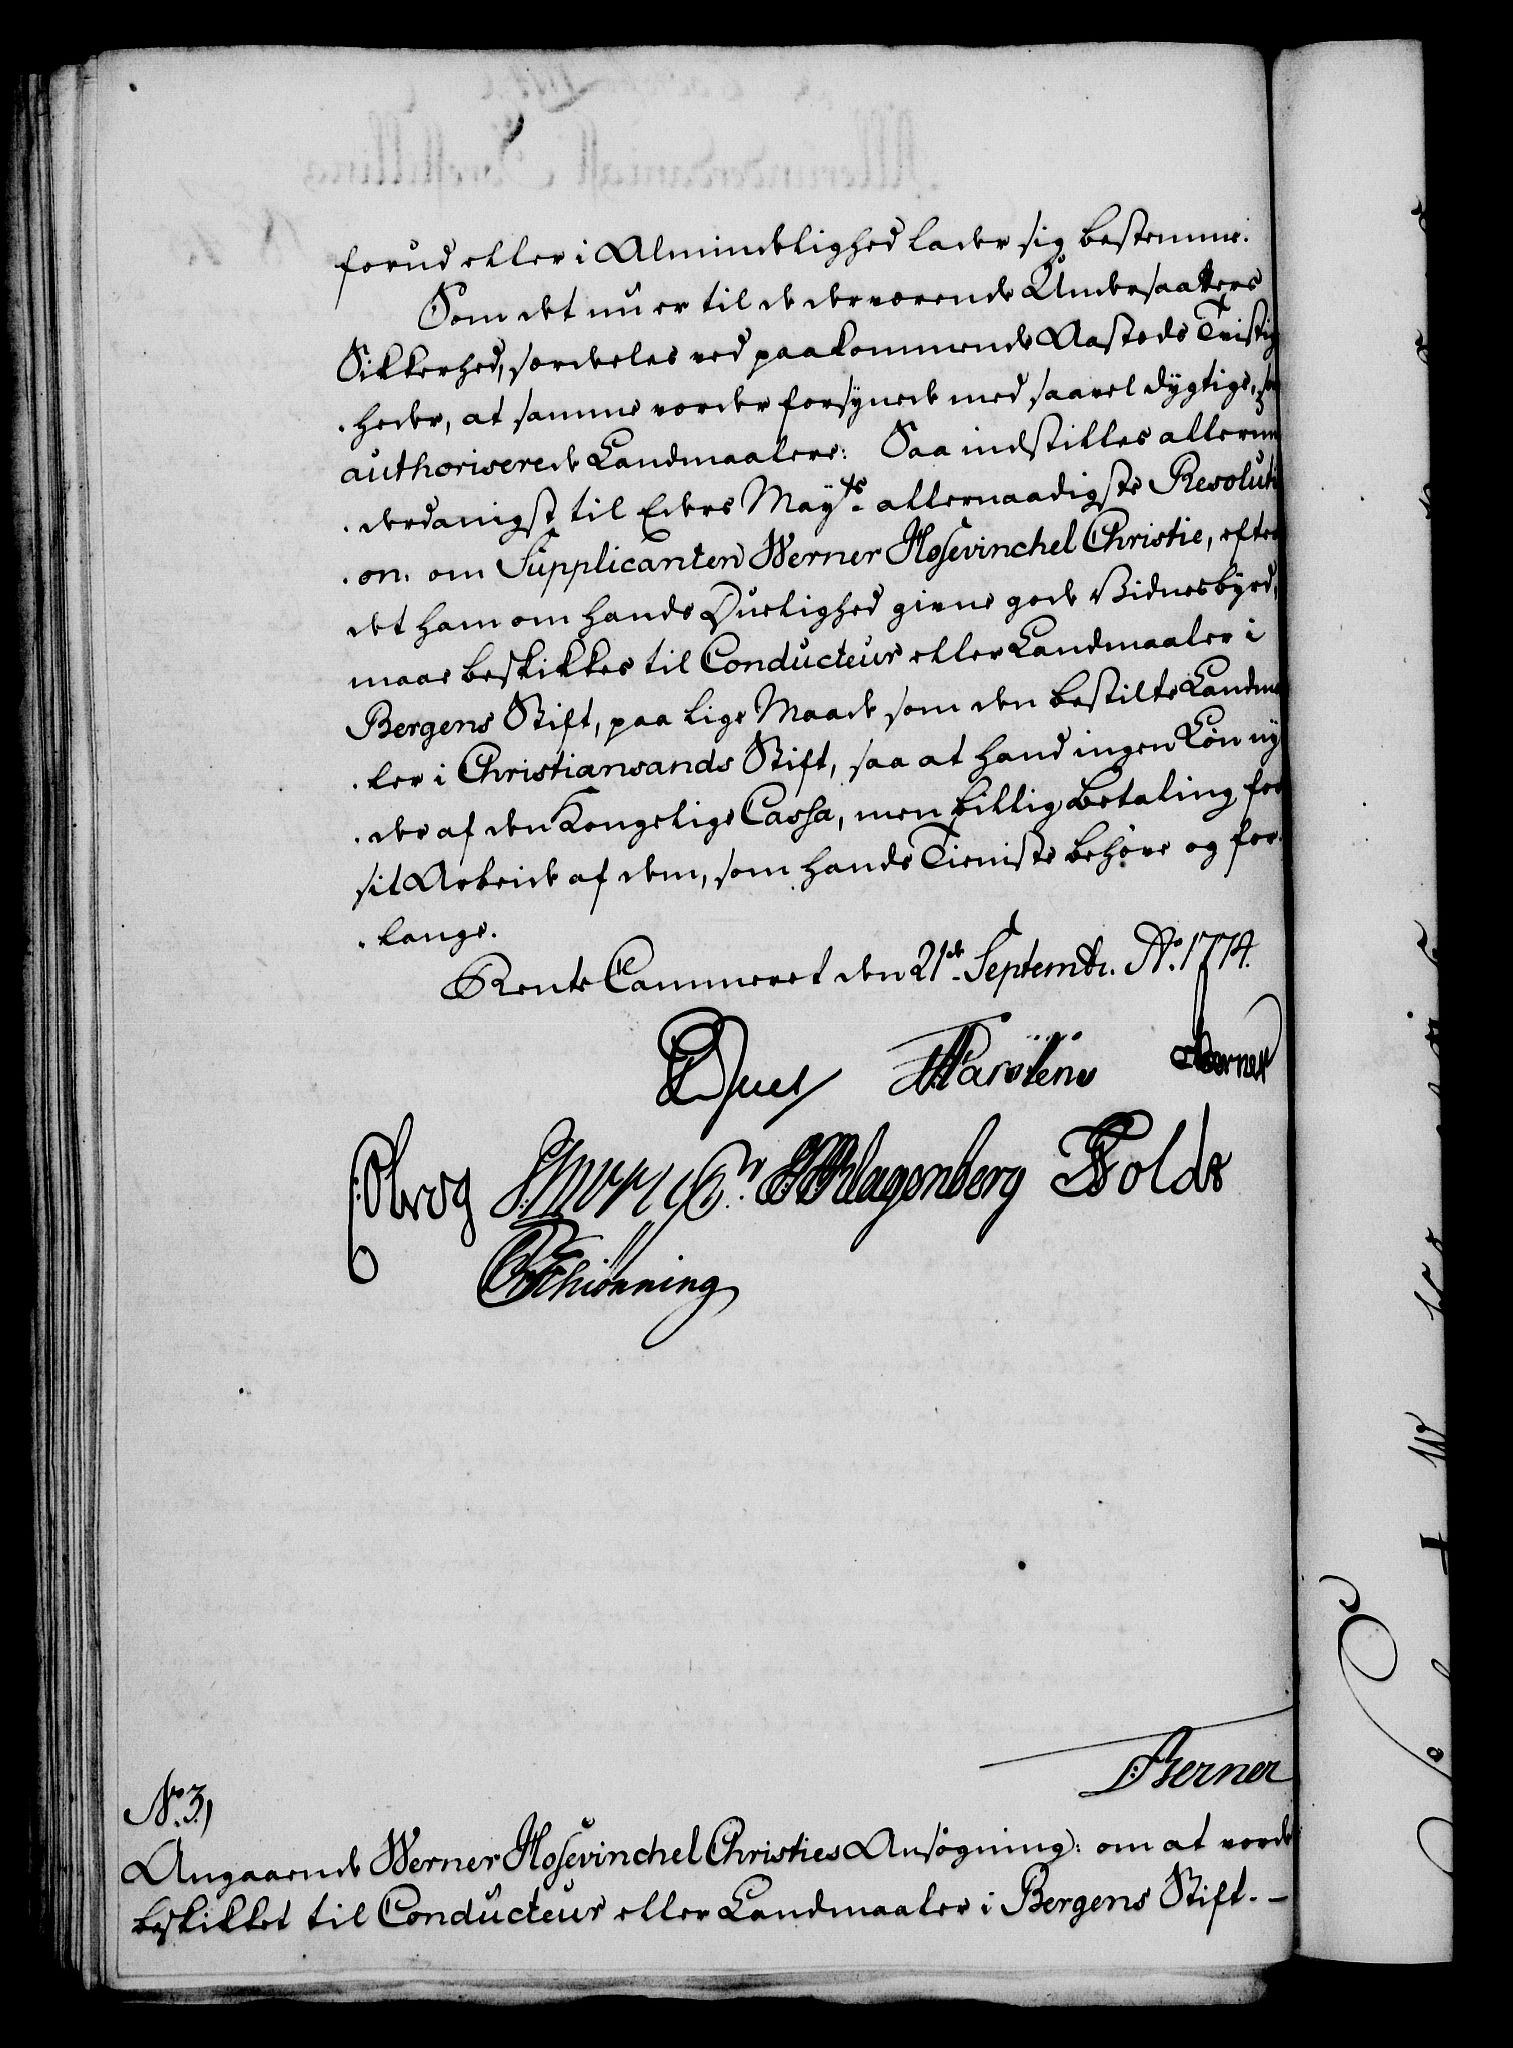 forud eller i Almindelighed lader sig bestemme.
Som det nu er til de derværende Undersaatters
Sikkerhed, særdeles ved paakommende Aasteds Tvistig
heder, at samme vorder forsynede med saavel dygtige, som
authoriserede Landmaalere: Saa indstilles allerun
derdanigst til Eders Mayts. allernaadigste Resoluti
on: om Supplicanten Werner Hosevinchel Christie, efter
det ham om hands Duelighed givne gode Vidnesbyrd,
maae beskikkes til Conducteur eller Landmaaler i
Bergens Stift, paa lige Maade som den bestilte Landma
ler i Christiansands Stift, saa at hand ingen Løn ny
der af den Kongelige Cassa, men billig Betaling for
sit Arbeide af dem, som hands Tieniste behøve og for
lange.
Rente Cammeret den 21de Septembr. Ao. 1774.
Juel Karstens Berner
Olrog Klagenberg Holde
Schiønning
Berner
No. 3,)
Angaaende Werner Hosevinchel Christies Ansøgning: om at vorde
beskikket til Conducteur eller Landmaaler i Bergens Stift. -